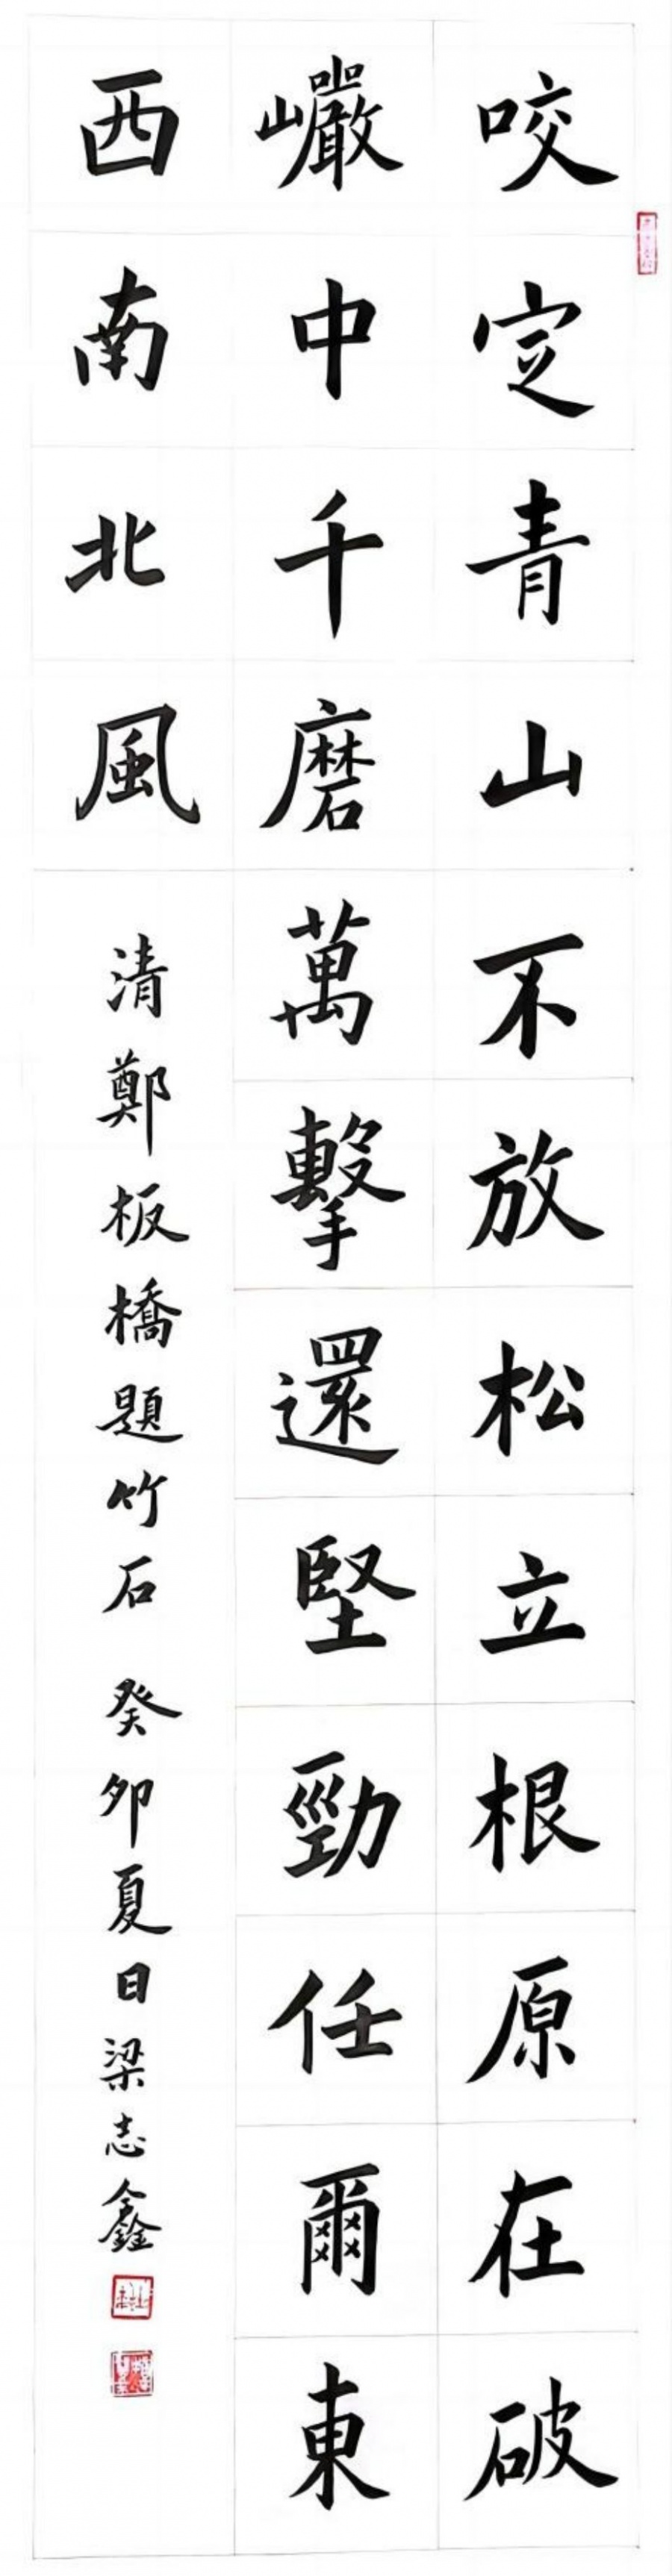 咬定青山不放松立根原在破
巗中千磨萬擊還堅勁任爾東
西南北風
清鄭板橋題竹石 癸卯夏日梁志鑫